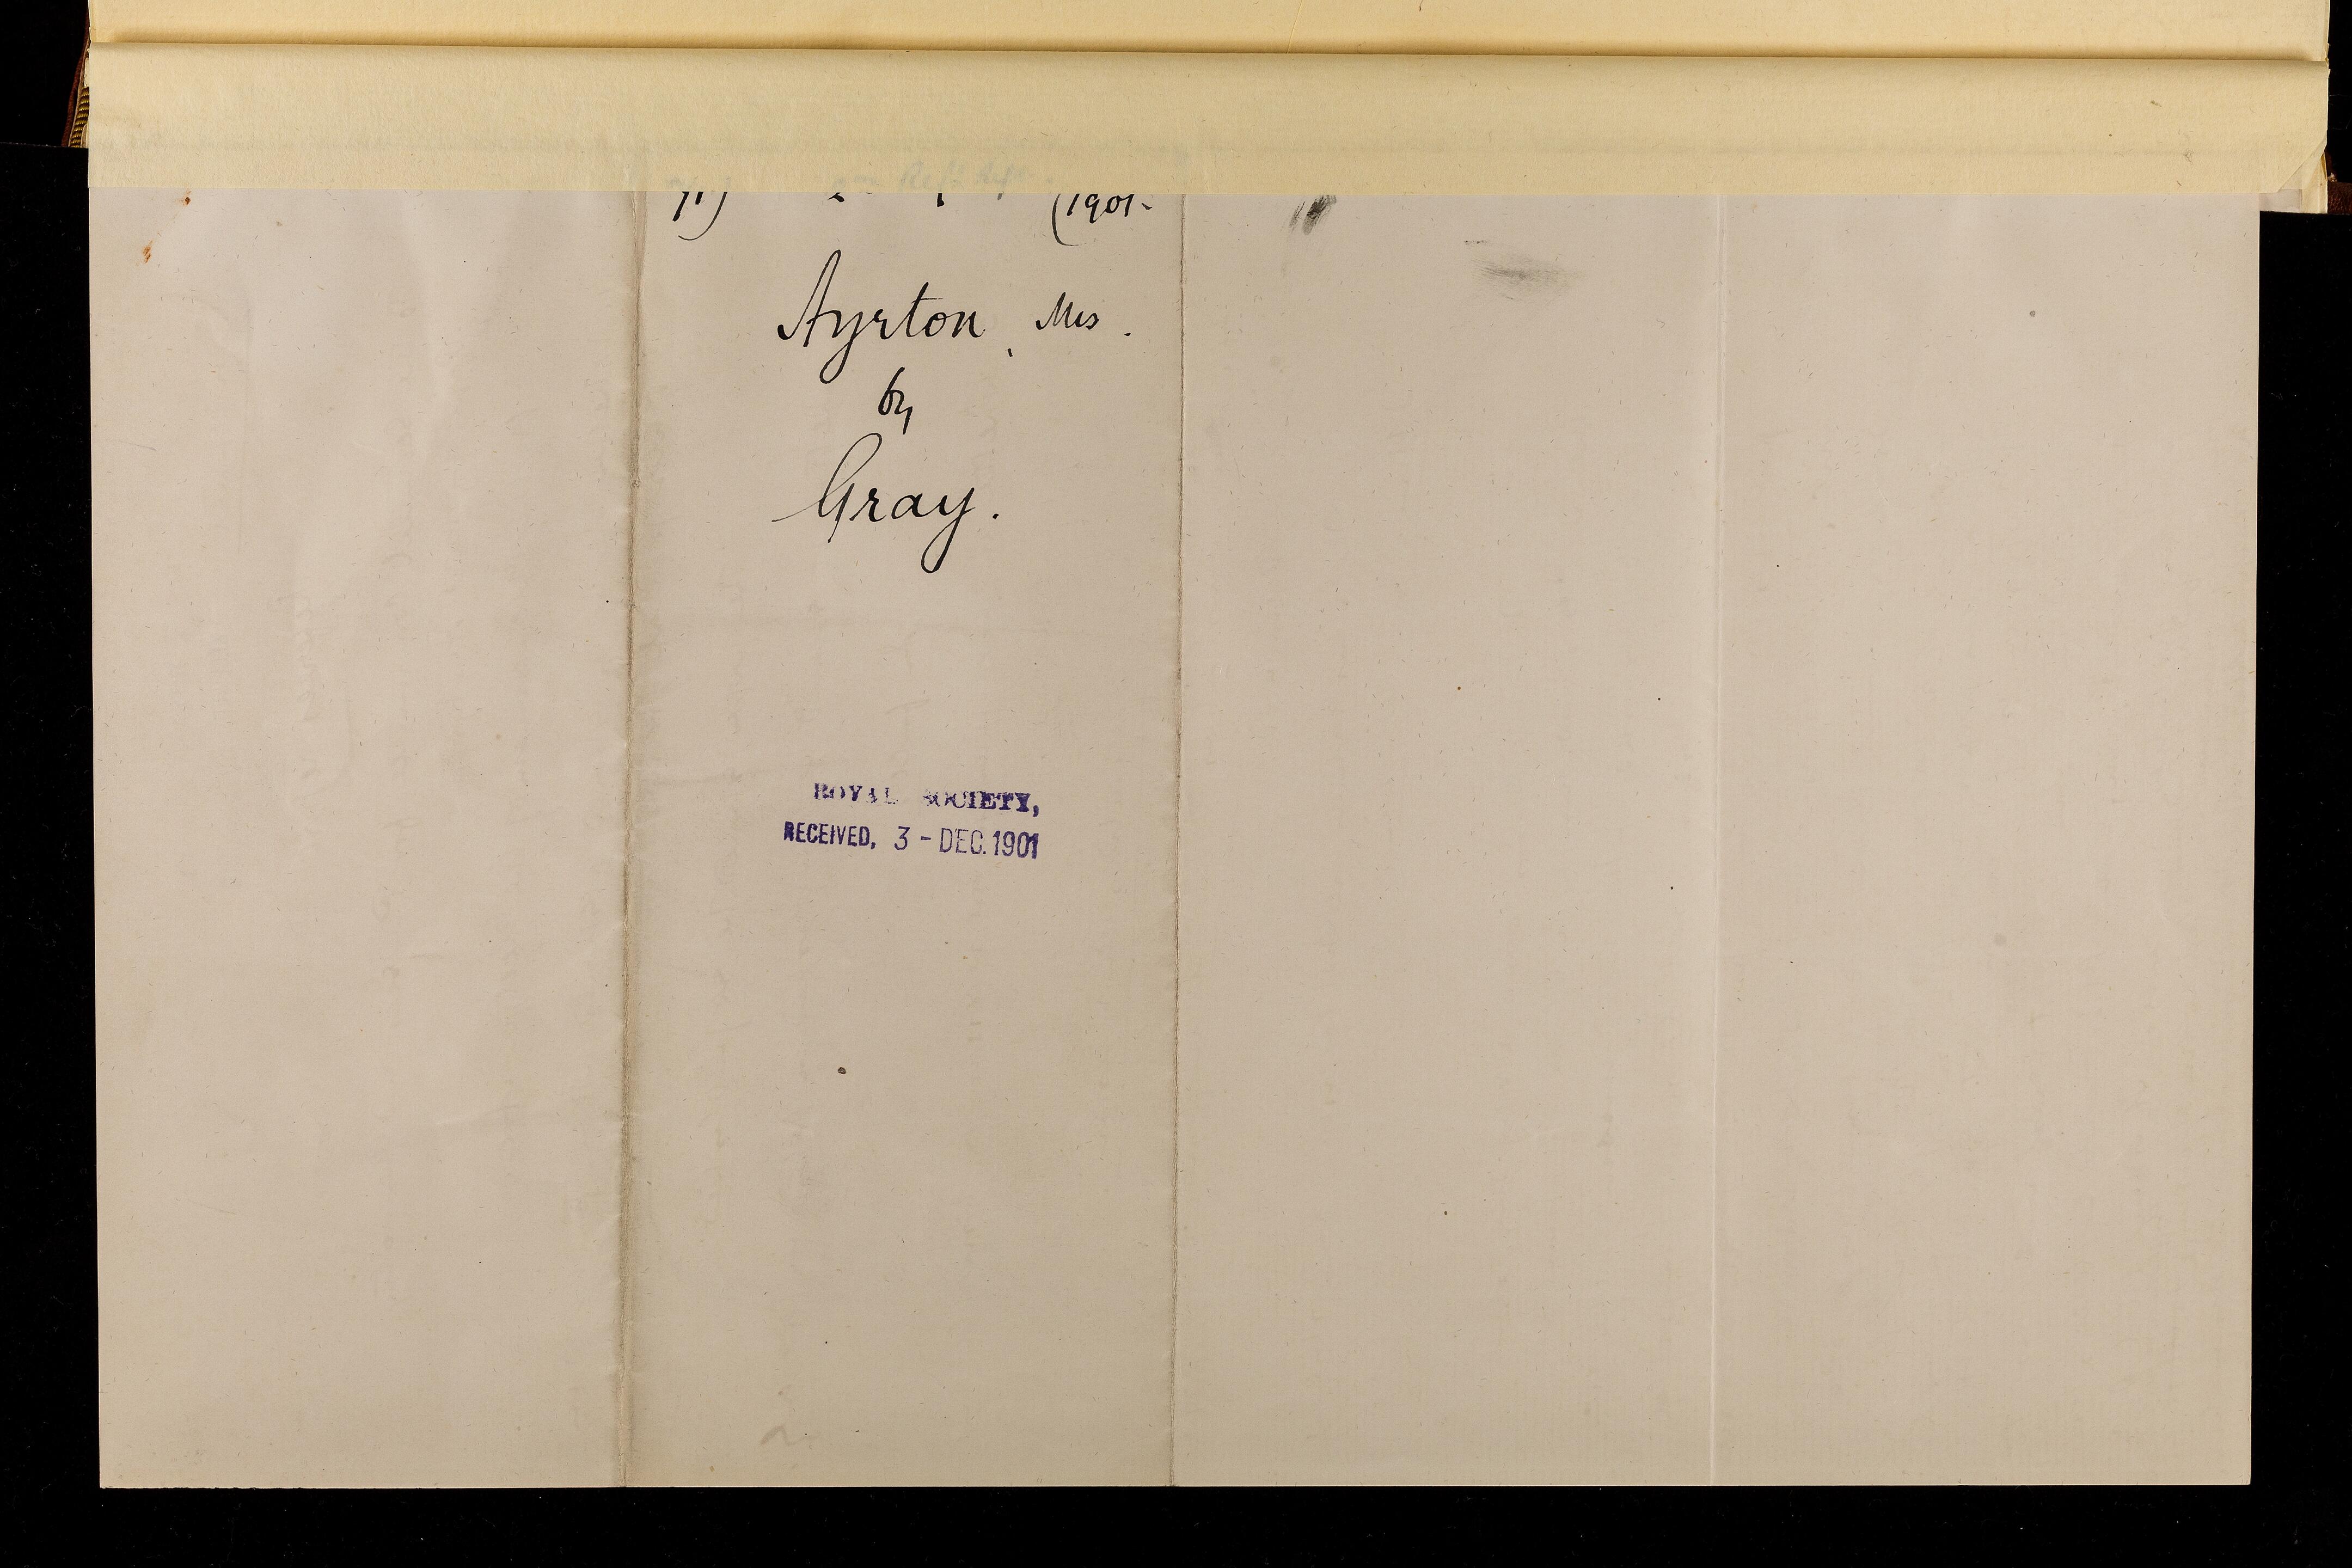 (1901.
Ayrton, Mrs.
by
Gray.
ROYAL SOCIETY,
RECEIVED, 3 - DEC. 1901